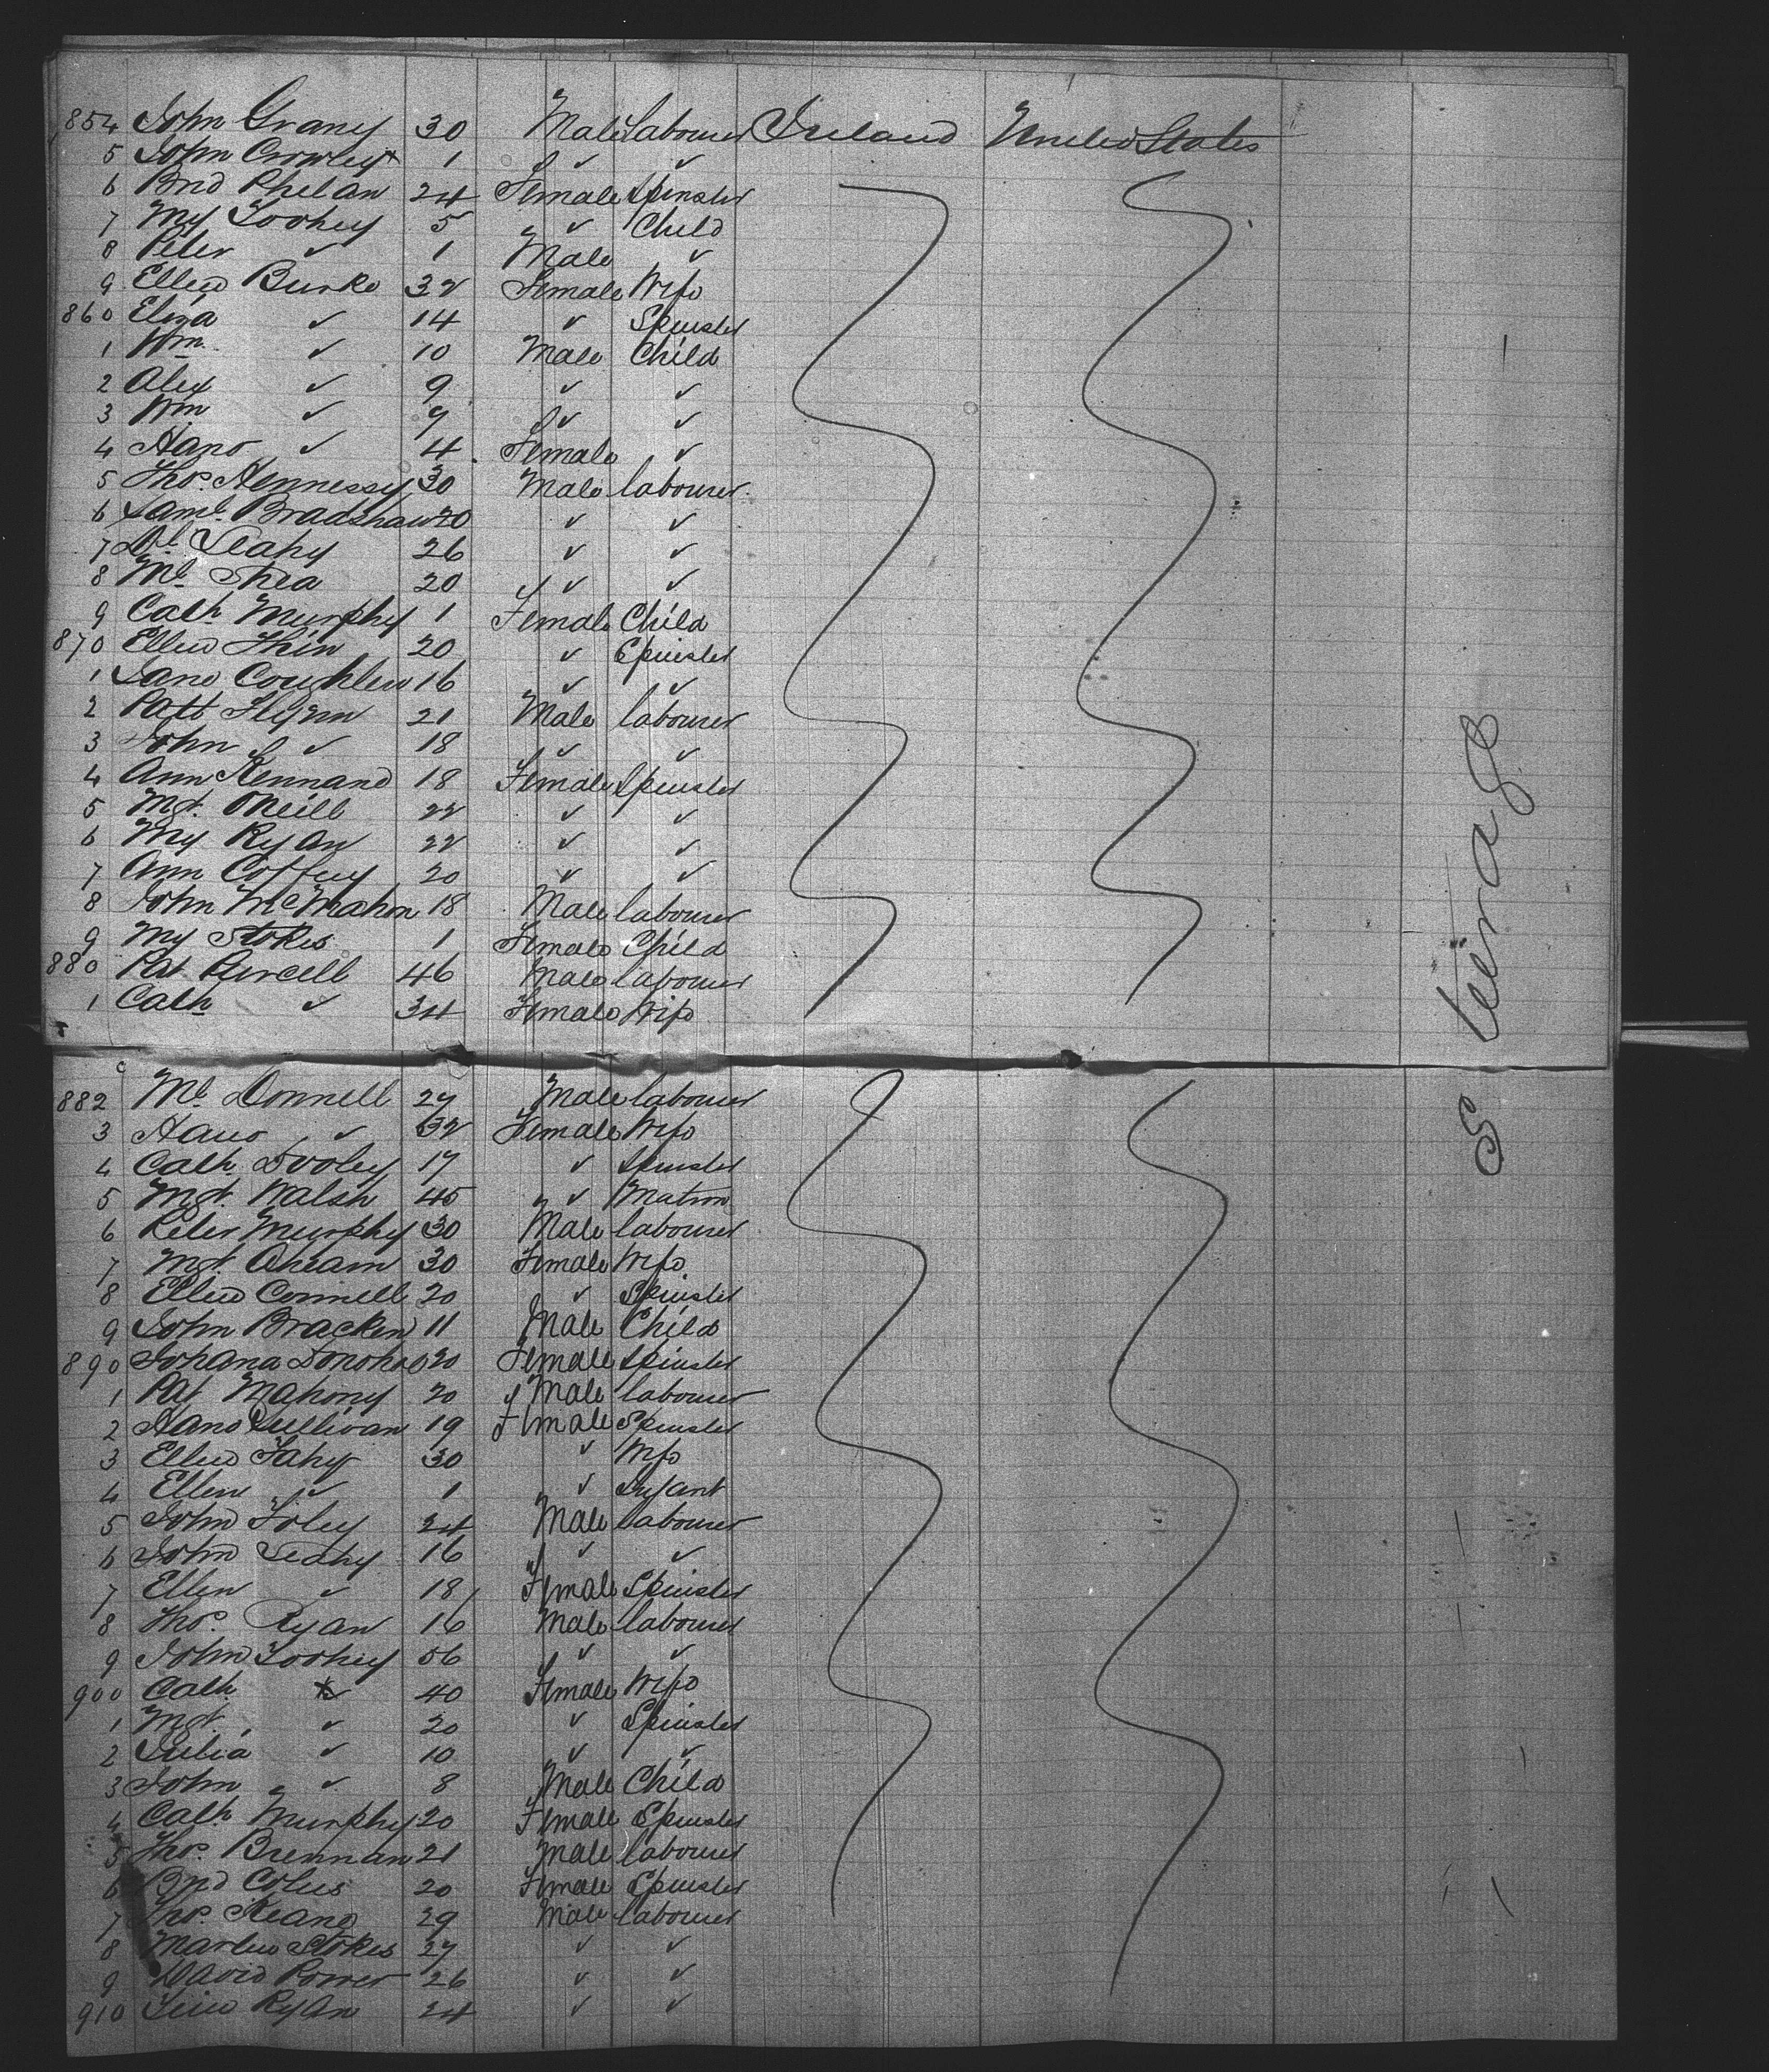 854 John Grany 30 Male Labourer Ireland United States
5 John Crowley 1 ✓ ✓
6 Brid Phelan 24 Female Spinster
7 My Toohey 5 ✓ Child
8 Peter ✓ 1 Male ✓
9 Ellen Burke 32 Female Wife
860 Eliza ✓ 14 ✓ Spinster
1 Wm ✓ 10 Male Child
2 Alex ✓ 9 ✓ ✓
3 Wm ✓ 9 ✓ ✓
4 Hano ✓ 4 Female ✓
5 Thos. Hennessy 30 Male labourer
6 Saml. Bradshaw 20 ✓ ✓
7 Dl. Leahy 26 ✓ ✓
8 Ml. Shea 20 ✓ ✓
9 Cath Murphy 1 Female Child
870 Ellen 20 ✓ Spinster
1 Coughlen 16 ✓ ✓
2 Patt Flynn 21 Male labourer
3 John ✓ 18 ✓ ✓
4 Ann Kennand 18 Female Spinster
5 Mgt. ONeill 22 ✓ ✓
6 My Ryan 22 ✓ ✓
7 Ann Coffey 20 ✓ ✓
8 John McMahon 18 Male labourer
9 My Stokes 1 Female Child
880 Pat Purcell 46 Male labourer
1 Cath ✓ 34 Female Wife
Steirage
882 Ml. Donnell 27 Male labourer
3 Hano ✓ 32 Female Wife
4 Cath. Dooley 17 ✓ Spinster
5 Mgt. Walsh 45 ✓ Matron
6 Peter Murphy 30 Male labourer
7 Mgt Ahearn 30 Female Wife
8 Ellen Connell 20 ✓ Spinster
9 John Bracken 11 Male Child
890 Johana Donohoe 20 Female Spinster
1 Pat Mahony 20 Male labourer
2 Hano Sullivan 19 Female Spinster
3 Ellen Fahy 30 ✓ Wife
4 Ellen ✓ 1 ✓ Infant
5 John Foley 24 Male labourer
6 John Leahy 16 ✓ ✓
7 Ellen ✓ 18 Female Spinster
8 Thos. Ryan 16 Male labourer
9 John Toohey 56 ✓ ✓
900 Cath. ✓ 40 Female Wife
1 Mgt. ✓ 20 ✓ Spinster
2 Julia ✓ 10 ✓ ✓
3 John ✓ 8 Male Child
4 Cath. Murphy 20 Female Spinster
5 Thos. Brennan 21 Male labourer
6 Brid 20 Female Spinster
7 Thos. Keano 29 Male labourer
8 Marten Stokes 27 ✓ ✓
9 David Power 26 ✓ ✓
910 Ryan 24 ✓ ✓